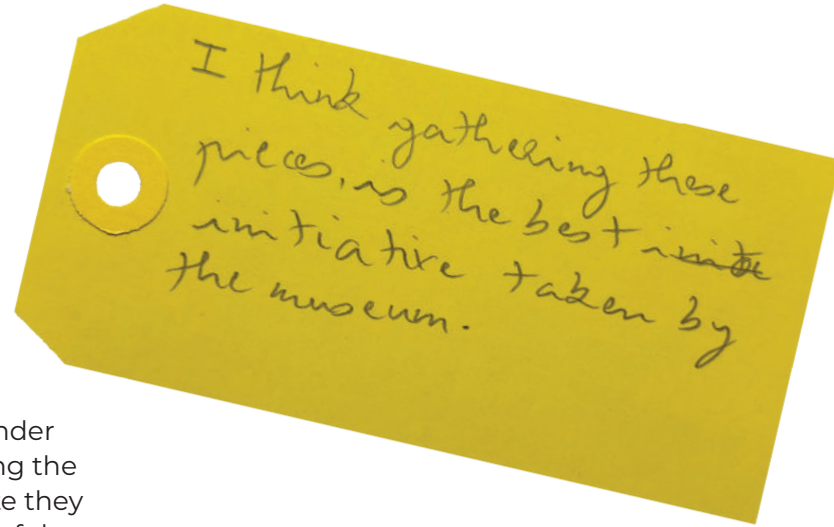 I think gathering these
pieces, is the best
initiative taken by
the museum.
nder
ng the
e they